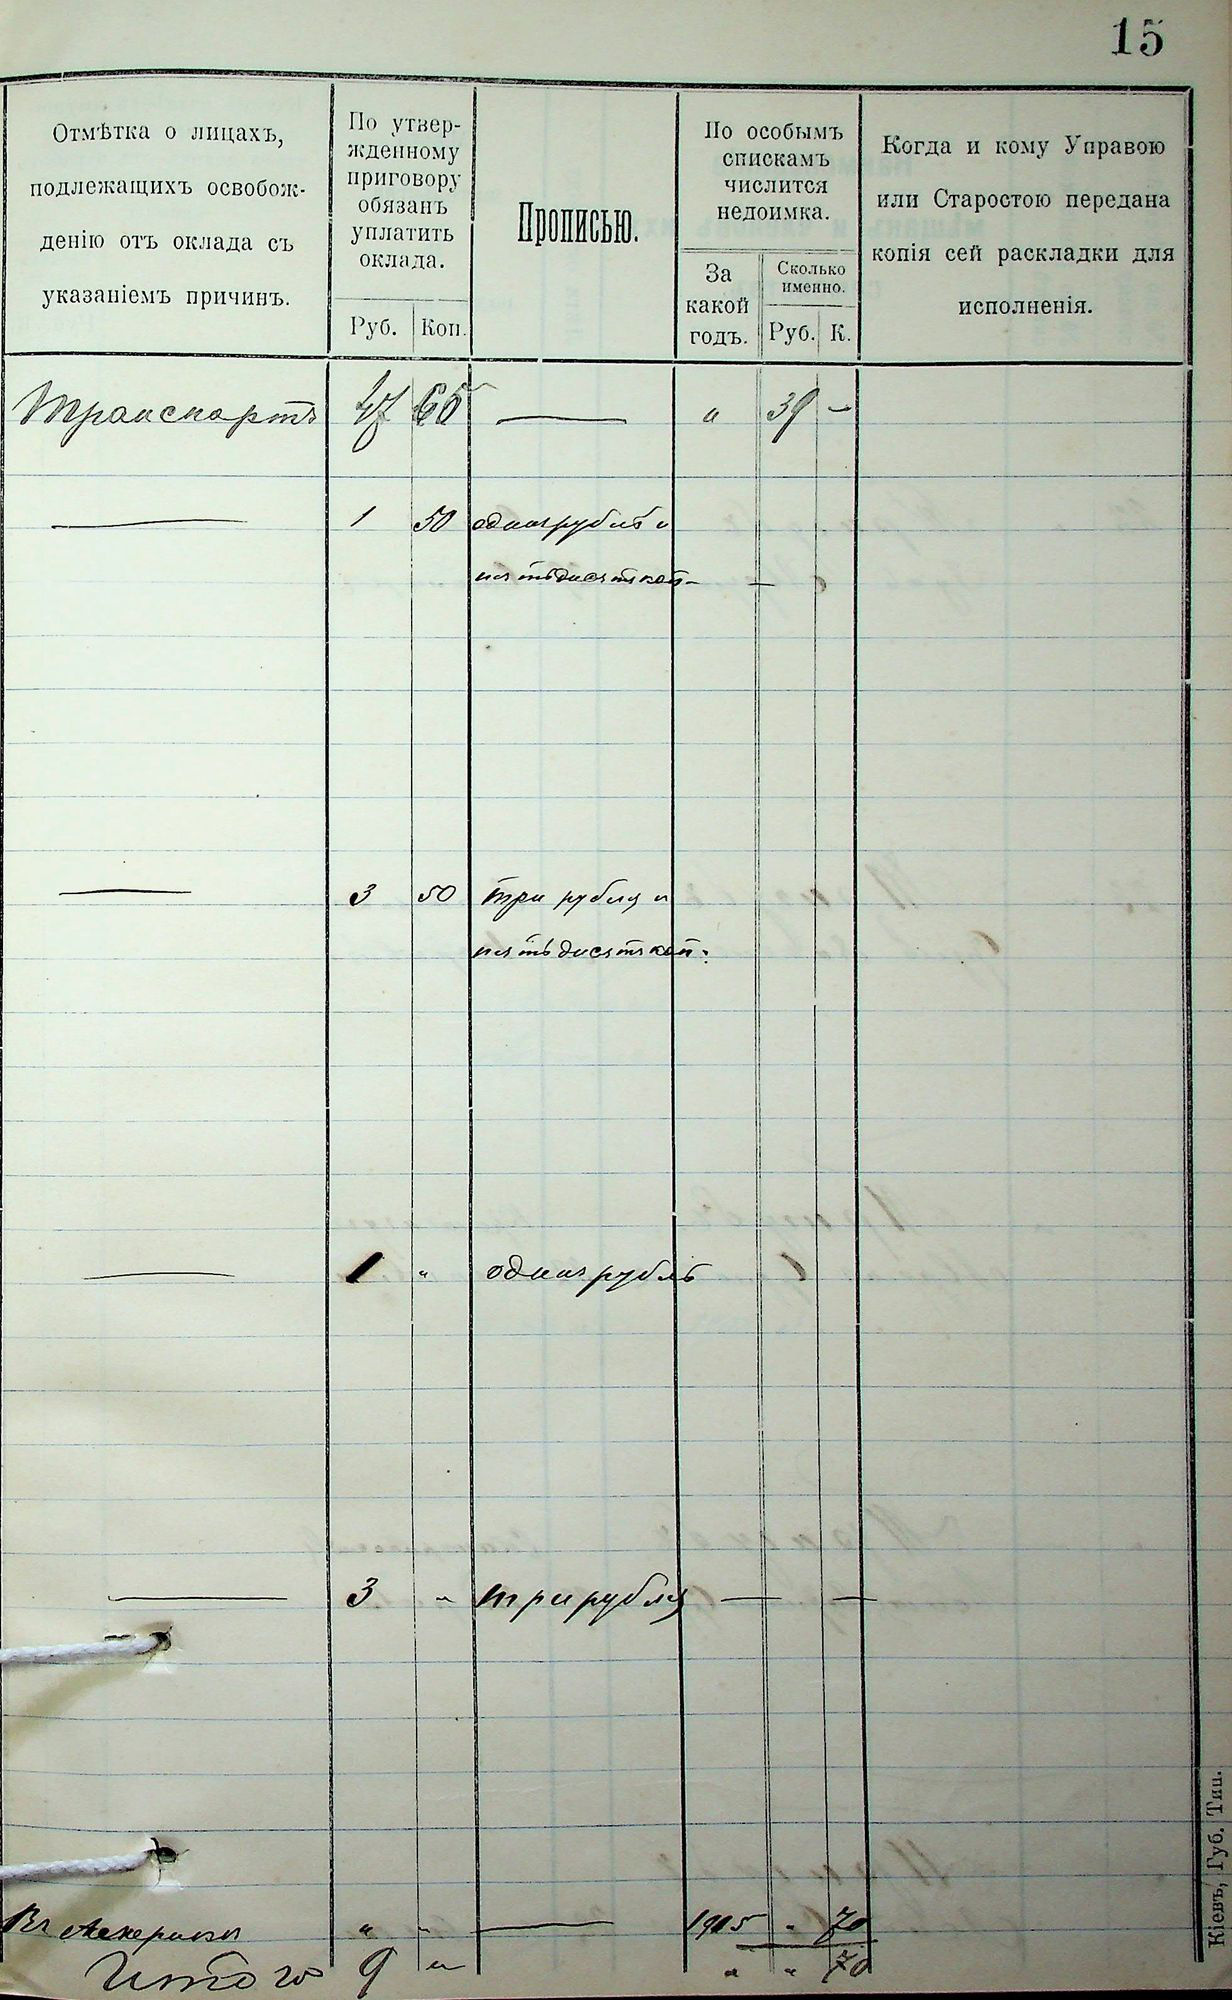 15
Отмѣтка о лицахъ,
подлежащихъ освобож-
денію отъ оклада съ
указаніемъ причинъ.
По утвер-
жденному
приговору
обязанъ
уплатить
оклада.
Руб. Коп.
Прописью.
По особымъ
спискамъ
числится
недоимка.
За
какой
годъ.
Сколько
именно.
Руб. К.
Когда и кому Управою
или Старостою передана
копія сей раскладки для
исполненія.
Транспортъ 65 — " 39 —
— 1 50 одинъ рубль и
пятьдесятъ коп. —
— 3 50 три рубля и
пятьдесятъ коп.
— 1 " одинъ рубль
— 3 " три рубля — —
" " — 1905 " 70
Итого 9 " " " 70
Кіевъ, Губ. Тип.